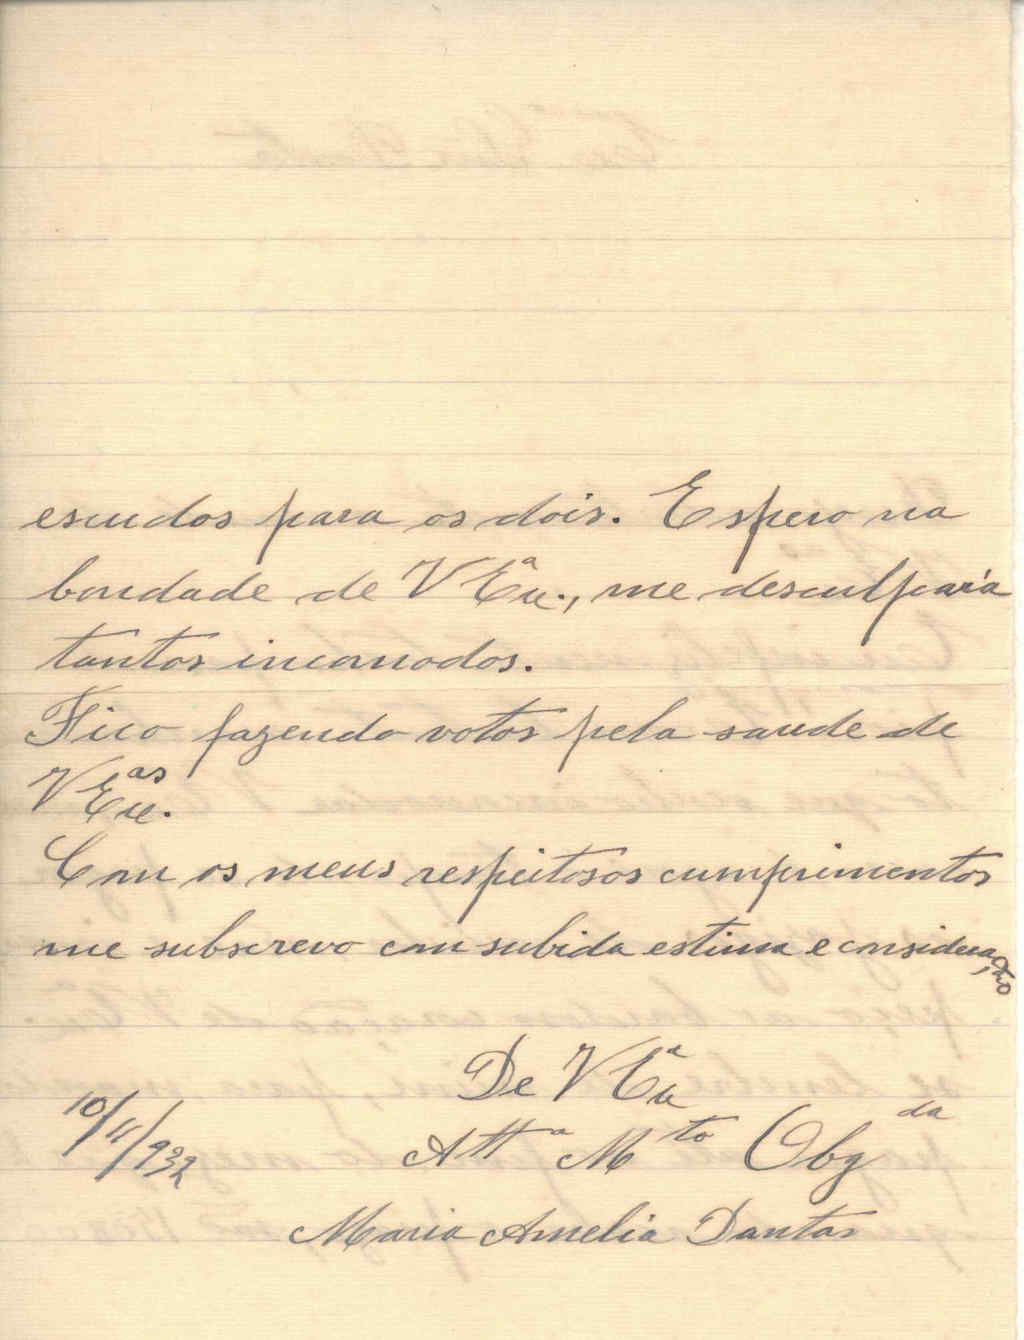 escudos para os dois. Espero na
bondade de V Exª., me desculpará
tantos incomodos.
Fico fazendo votos pela saude de
V Exᵃˢ.
Com os meus respeitosos cumprimentos
me subscrevo com subida estima e consideração
De V Exª
10/11/932
Attª Mᵗᵒ Obgᵈᵃ
Maria Amelia Dantas